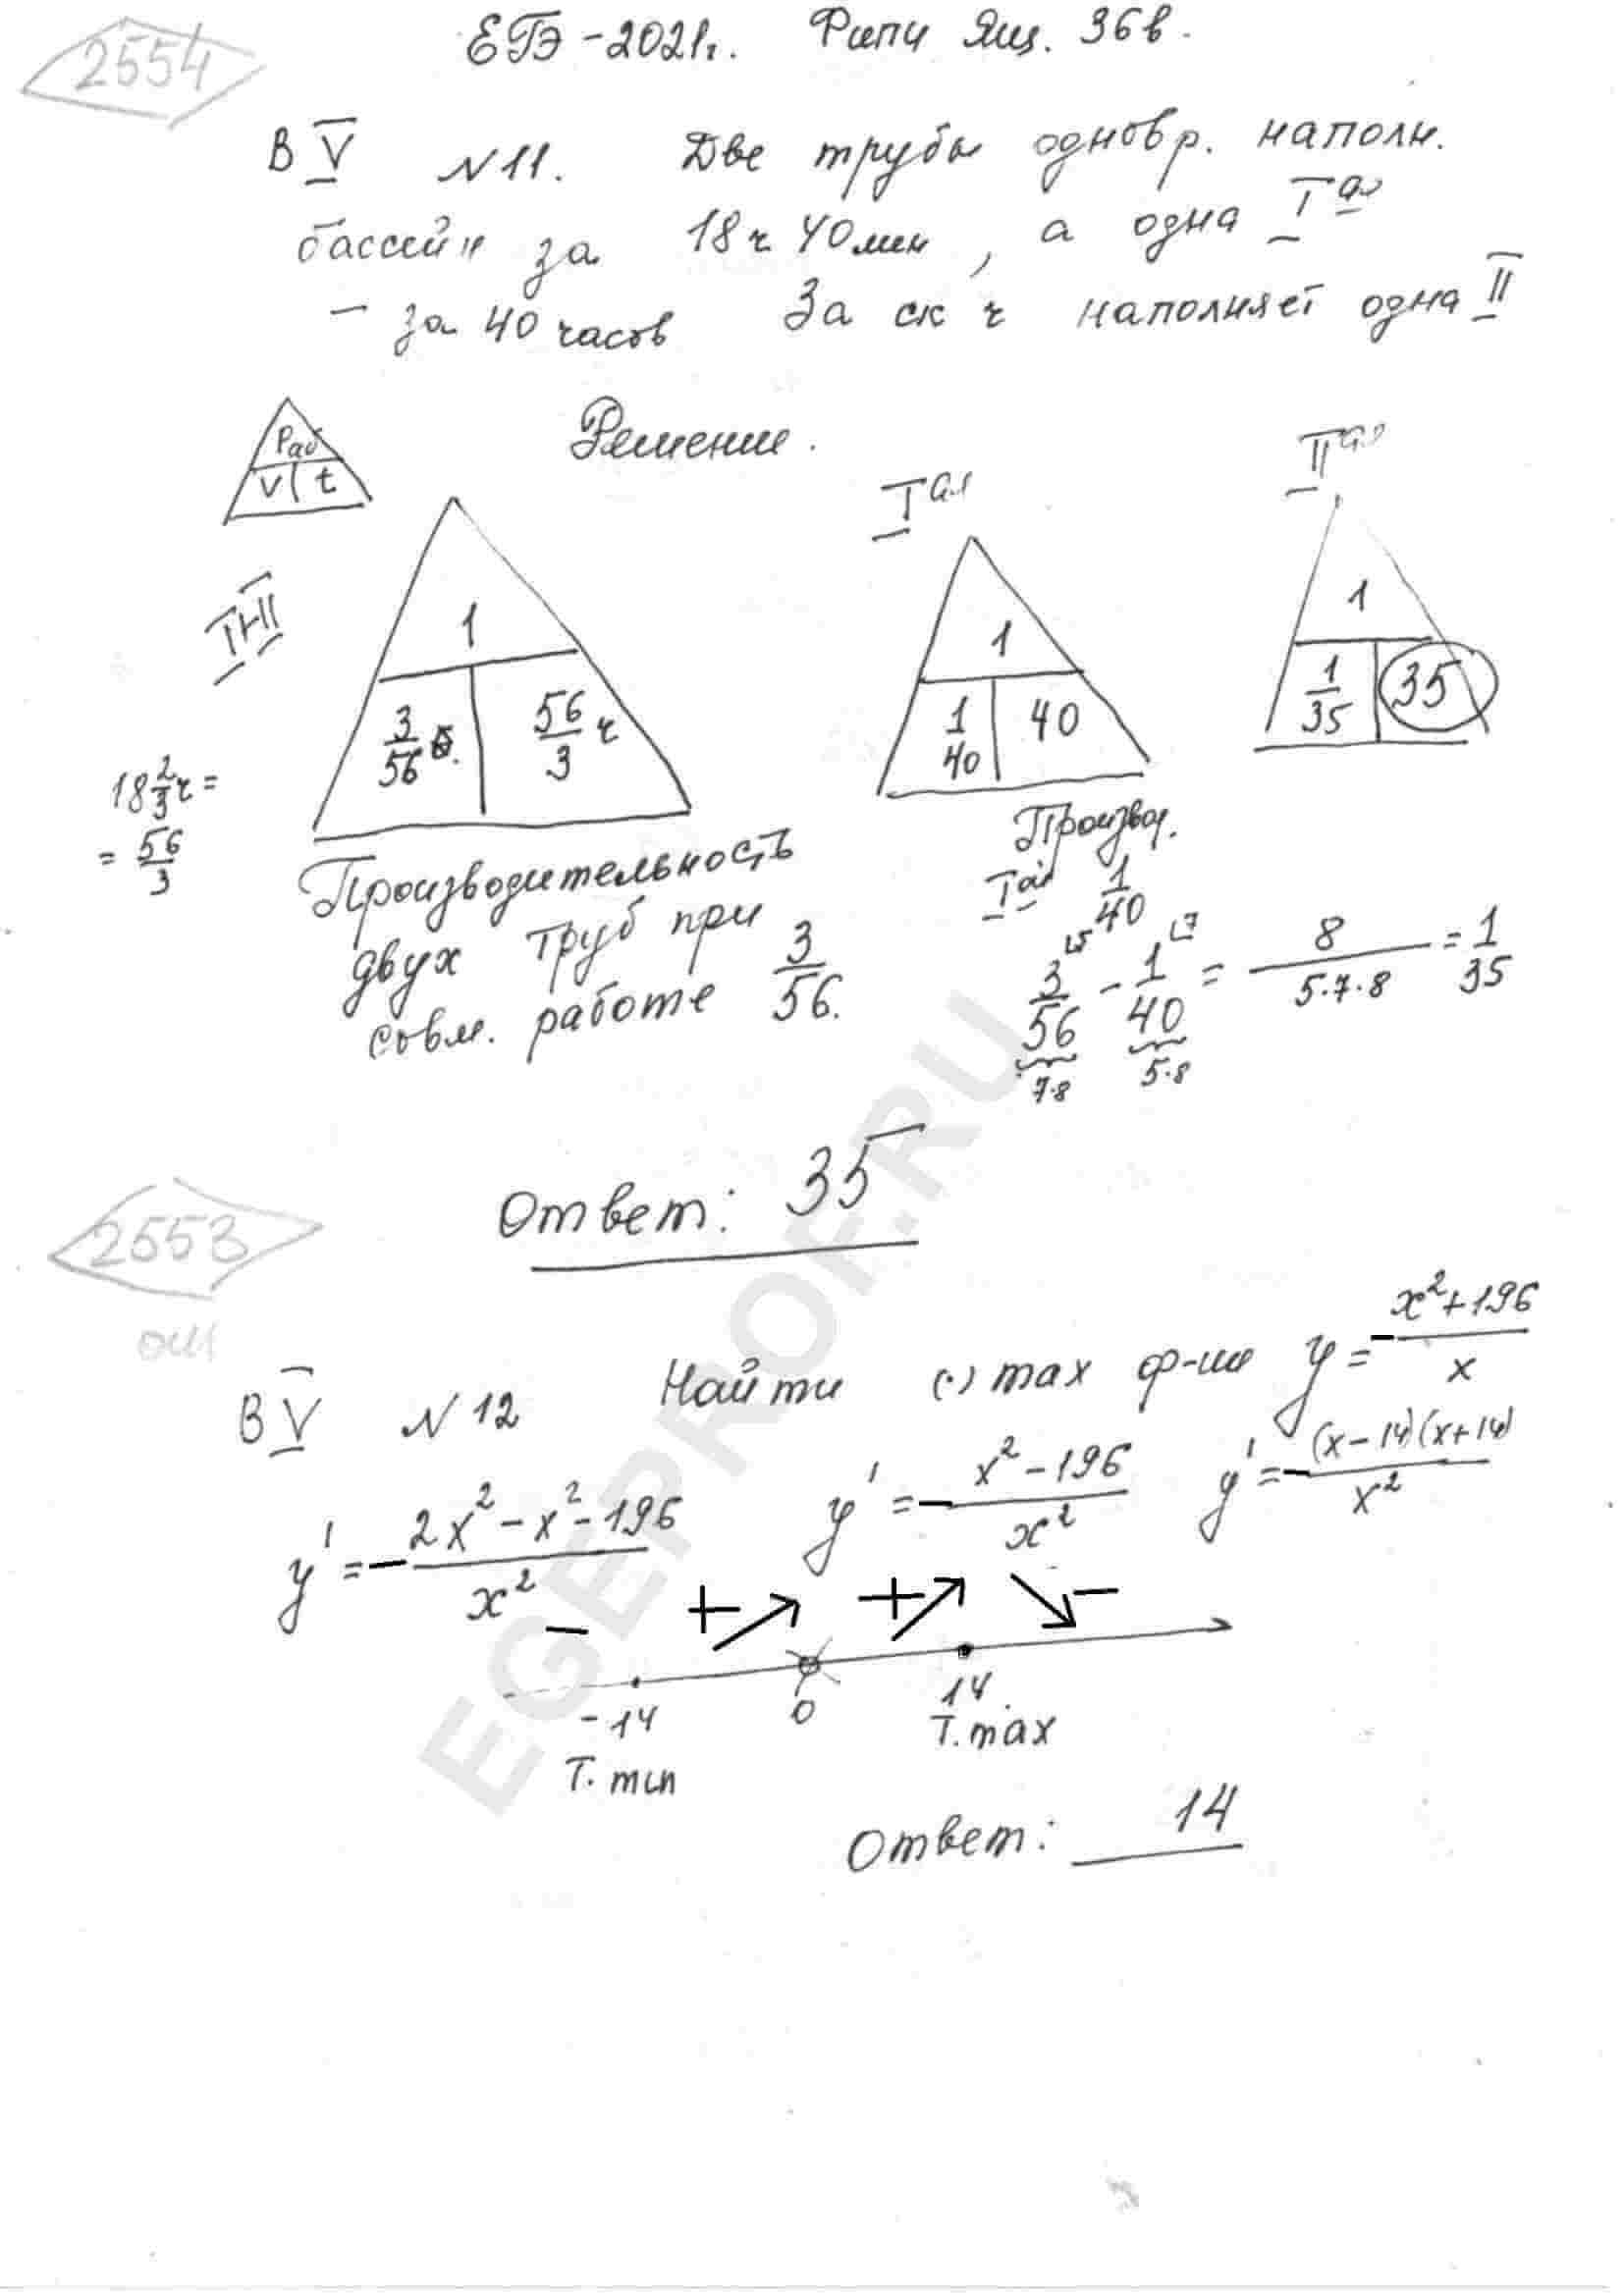 2554
ЕГЭ-2021г. Фипи Ящ. 36в.
В V №11. Две трубы одновр. наполн.
бассейн за 18ч 40мин, а одна I ая
- за 40 часов За ск ч наполняет одна II
Решение.
Раб
v t
I+II
1
3/56 б. 56/3 ч
I ая
1
1/40 40
II ая
1
1/35 35
18 2/3 ч =
= 56/3
Производительность
двух труб при
совм. работе 3/56.
Произвол.
I ая 1/40
3/56 - 1/40 = 8/(5·7·8) = 1/35
7·8 5·8
Ответ: 35
2553
В V №12 Найти (·) max ф-ии y = -(x²+196)/x
y' = -(2x²-x²-196)/x² y' = -(x²-196)/x² y' = -((x-14)(x+14))/x²
- + + -
-14 0 14
т. min т. max
Ответ: 14
EGEPROF.RU